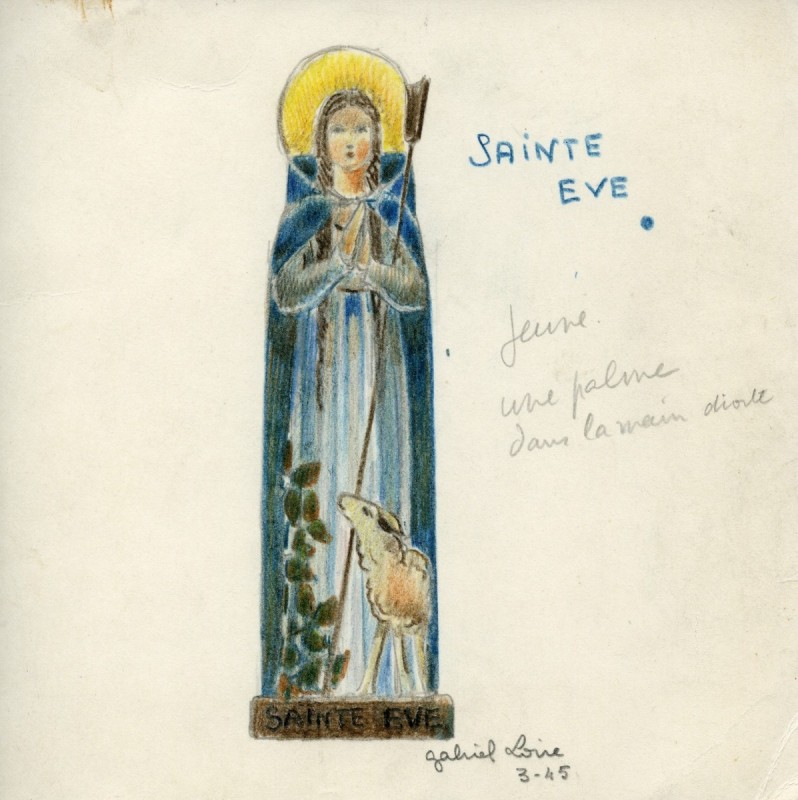 SAINTE
EVE
Jeune.
une palme
dans la main droite
SAINTE EVE
gabriel Loire
3-45